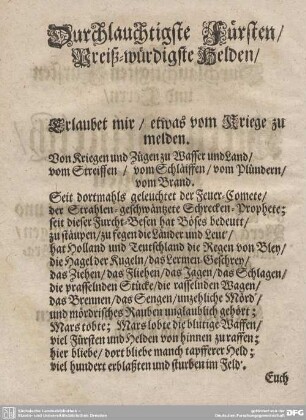 Durchlauchtigste Fürsten/
Preiß-würdigste Helden/
Erlaubet mir / etwas vom Kriege zu
melden.
Von Kriegen und Zügen zu Wasser und Land/
vom Streiffen / vom Schläiffen / vom Plündern/
vom Brand.
Seit dortmahls geleuchtet der Feuer-Comete/
der Strahlen-geschwäntzete Schrecken-Prophete;
seit dieser Furcht-Besen hat Böses bedeut/
zu stäupen/ zu fegen die Länder und Leut/
hat Holland und Teutschland die Regen von Bley/
die Hagel der Kugeln/ das Lermen-Geschrey/
das Ziehen/ das Fliehen/ das Jagen/ das Schlagen/
die prasselnden Stücke/ die rasselnden Wagen/
das Brennen/ das Sengen/ unzehliche Mörd/
und mördrisches Rauben unglaublich gehört;
Mars tobte; Mars lobte die blutige Waffen/
viel Fürsten und Helden von hinnen zu raffen;
hier bliebe/ dort bliebe manch tapfferer Held;
viel hundert erblaßten und sturben im Feld.
Euch